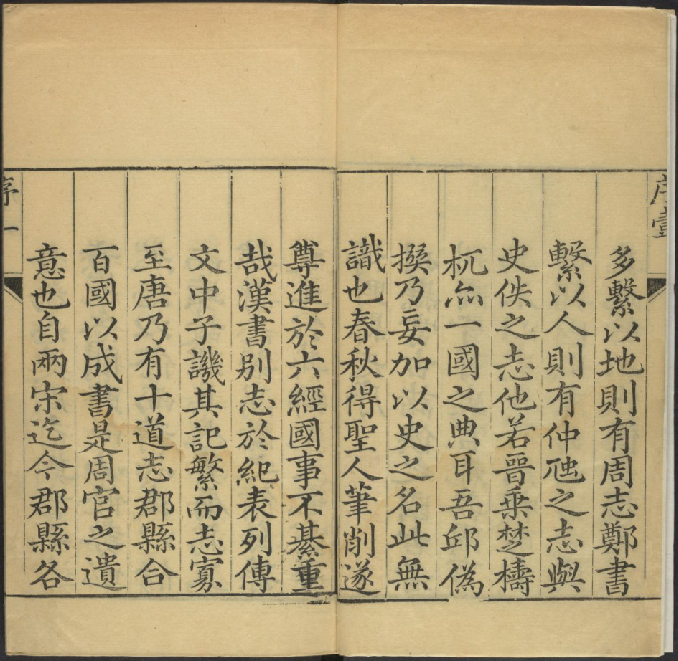 多繫以地則有周志鄭書
繫以人則有仲虺之志與
史佚之志他若晉乗楚檮
杌亦一國之典耳吾邱偽
撰乃妄加以史之名此無
識也春秋得聖人筆削遂
尊進於六經國事不綦重
哉漢書别志於紀表列傳
文中子譏其記繁而志寡
至唐乃有十道志郡縣合
百國以成書是周官之遺
意也自兩宋迄今郡縣各
序一